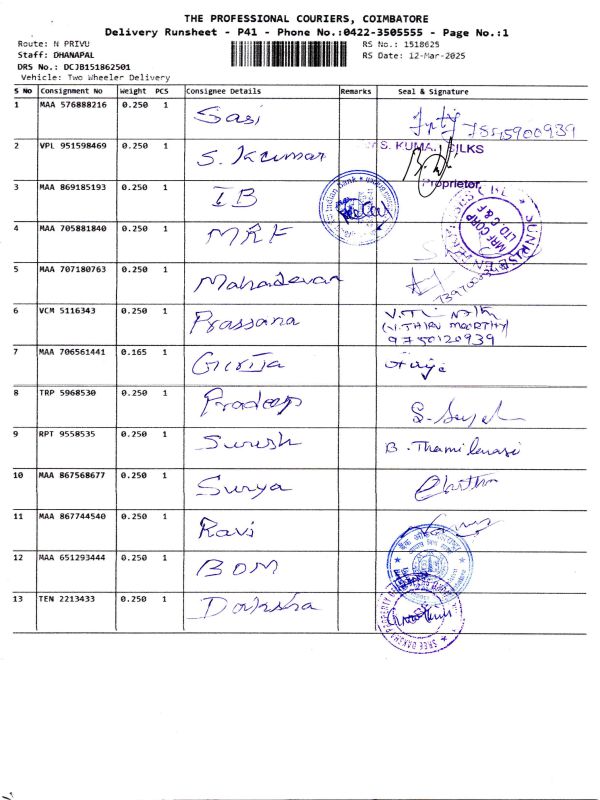 THE PROFESSIONAL COURIERS, COIMBATORE
Delivery Runsheet - P41 - Phone No.:0422-3505555 - Page No.:1
Route: N PRIVU RS No.: 1518625
Staff: DHANAPAL RS Date: 12-Mar-2025
DRS No.: DCJB151862501
Vehicle: Two Wheeler Delivery
S No Consignment No Weight PCS Consignee Details Remarks Seal & Signature
1 MAA 576888216 0.250 1 Sasi
2 VPL 951598469 0.250 1 S. Kumar S. KUMA SILKS
Proprietor
3 MAA 869185193 0.250 1 IB Indian Bank
4 MAA 705881840 0.250 1 MRF MRF CORP LTD C & F
5 MAA 707180763 0.250 1 Mahadevan
6 VCM 5116343 0.250 1 Prassana
(V.THIRU MOORTHY)
9750120939
7 MAA 706561441 0.165 1 Girija
8 TRP 5968530 0.250 1 Pradeep
9 RPT 9558535 0.250 1 Suresh B. Thamilarasi
10 MAA 867568677 0.250 1 Surya
11 MAA 867744540 0.250 1 Ravi
12 MAA 651293444 0.250 1 BOM
13 TEN 2213433 0.250 1 Daksha
SREE DAKSHA PROPERTY